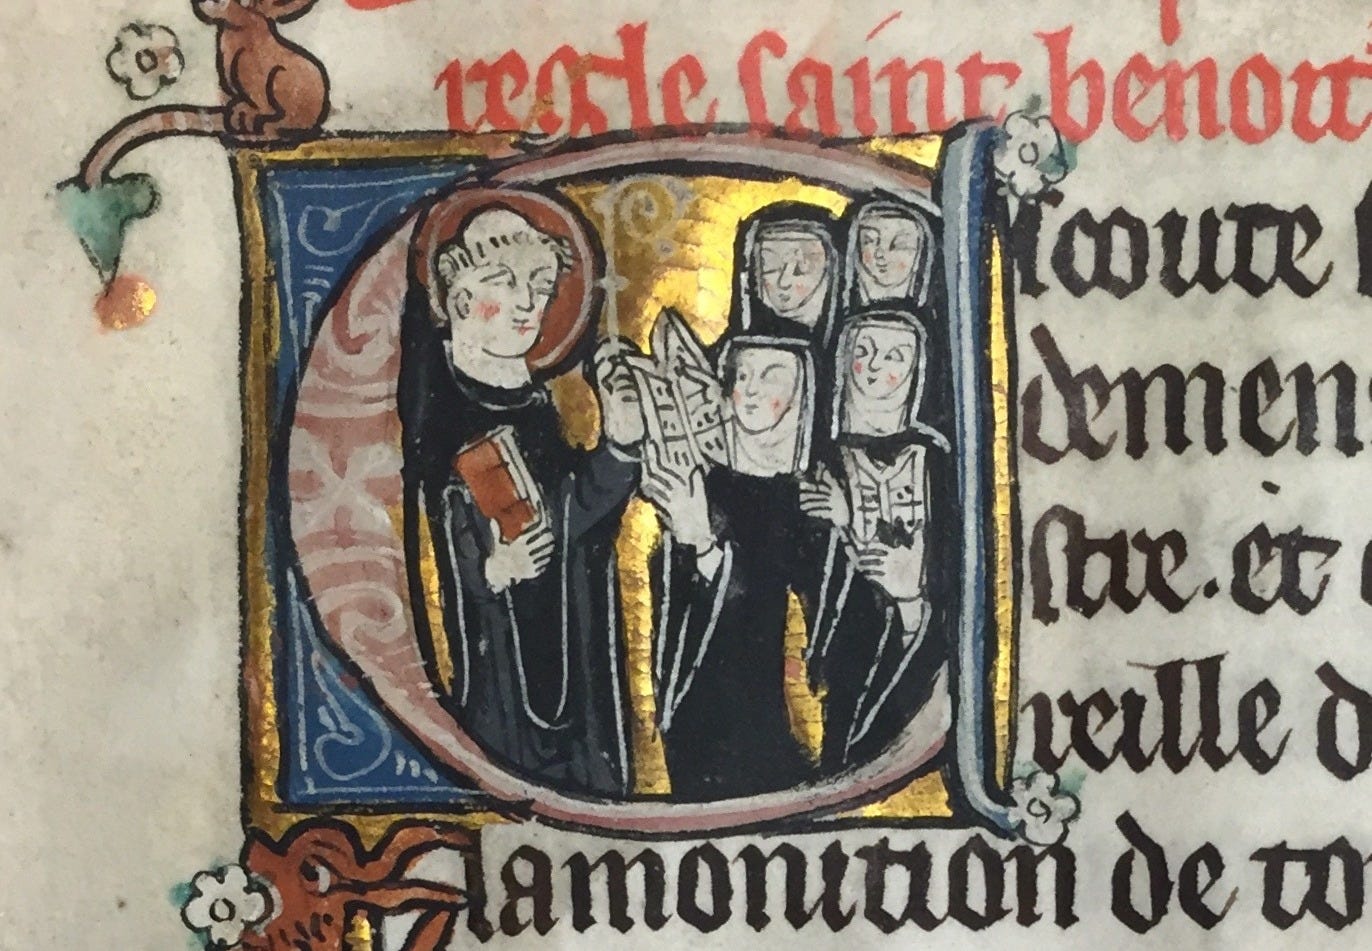 regle saint benoit
Escoute
demen
stre. et
reille d
lamonition de to